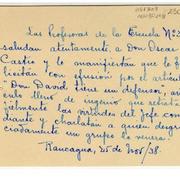 Las Profesoras de la Escuela Nº3
saludan atentamente a Don Oscar
Castro y le manifiestan que lo fe-
licitan con efusión por el artículo
"Don David tiene un defensor",
lleno de ingenio que retrata
las virudas del Jefe
diante y charlatán a quien
ciadamente un grupo
Rancagua, 25 de Nov/38.